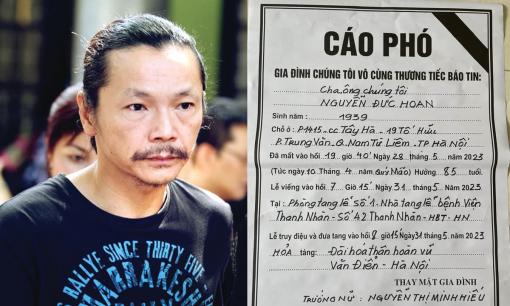 RALLYE SINCE THIRTY FIVE
MARRAKESH
CÁO PHÓ
GIA ĐÌNH CHÚNG TÔI VÔ CÙNG THƯƠNG TIẾC BÁO TIN:
Cha, ông chúng tôi
NGUYỄN ĐỨC HOAN
Sinh năm : 1939
Chỗ ở : P1415 - CC Tây Hà - 19 Tố Hữu
P. Trung Văn - Q. Nam Từ Liêm - TP Hà Nội
Đã mất vào hồi 19 giờ 40 28 tháng 5 năm 2023
(Tức ngày 10 Tháng 4 năm Quý Mão) Hưởng : 85 tuổi.
Lễ viếng vào hồi 7 giờ 15 ngày 31 tháng 5 năm 2023
Tại : Phòng tang lễ số 1 - Nhà tang lễ bệnh Viện
Thanh Nhàn - Số 42 Thanh Nhàn - HBT - HN
Lễ truy điệu và đưa tang vào hồi 8 giờ 15 ngày 31 tháng 5 năm 2023
HỎA táng : Đài hoá thân hoàn vũ
Văn Điển - Hà Nội
THAY MẶT GIA ĐÌNH
TRƯỞNG NỮ : NGUYỄN THỊ MINH HIẾU